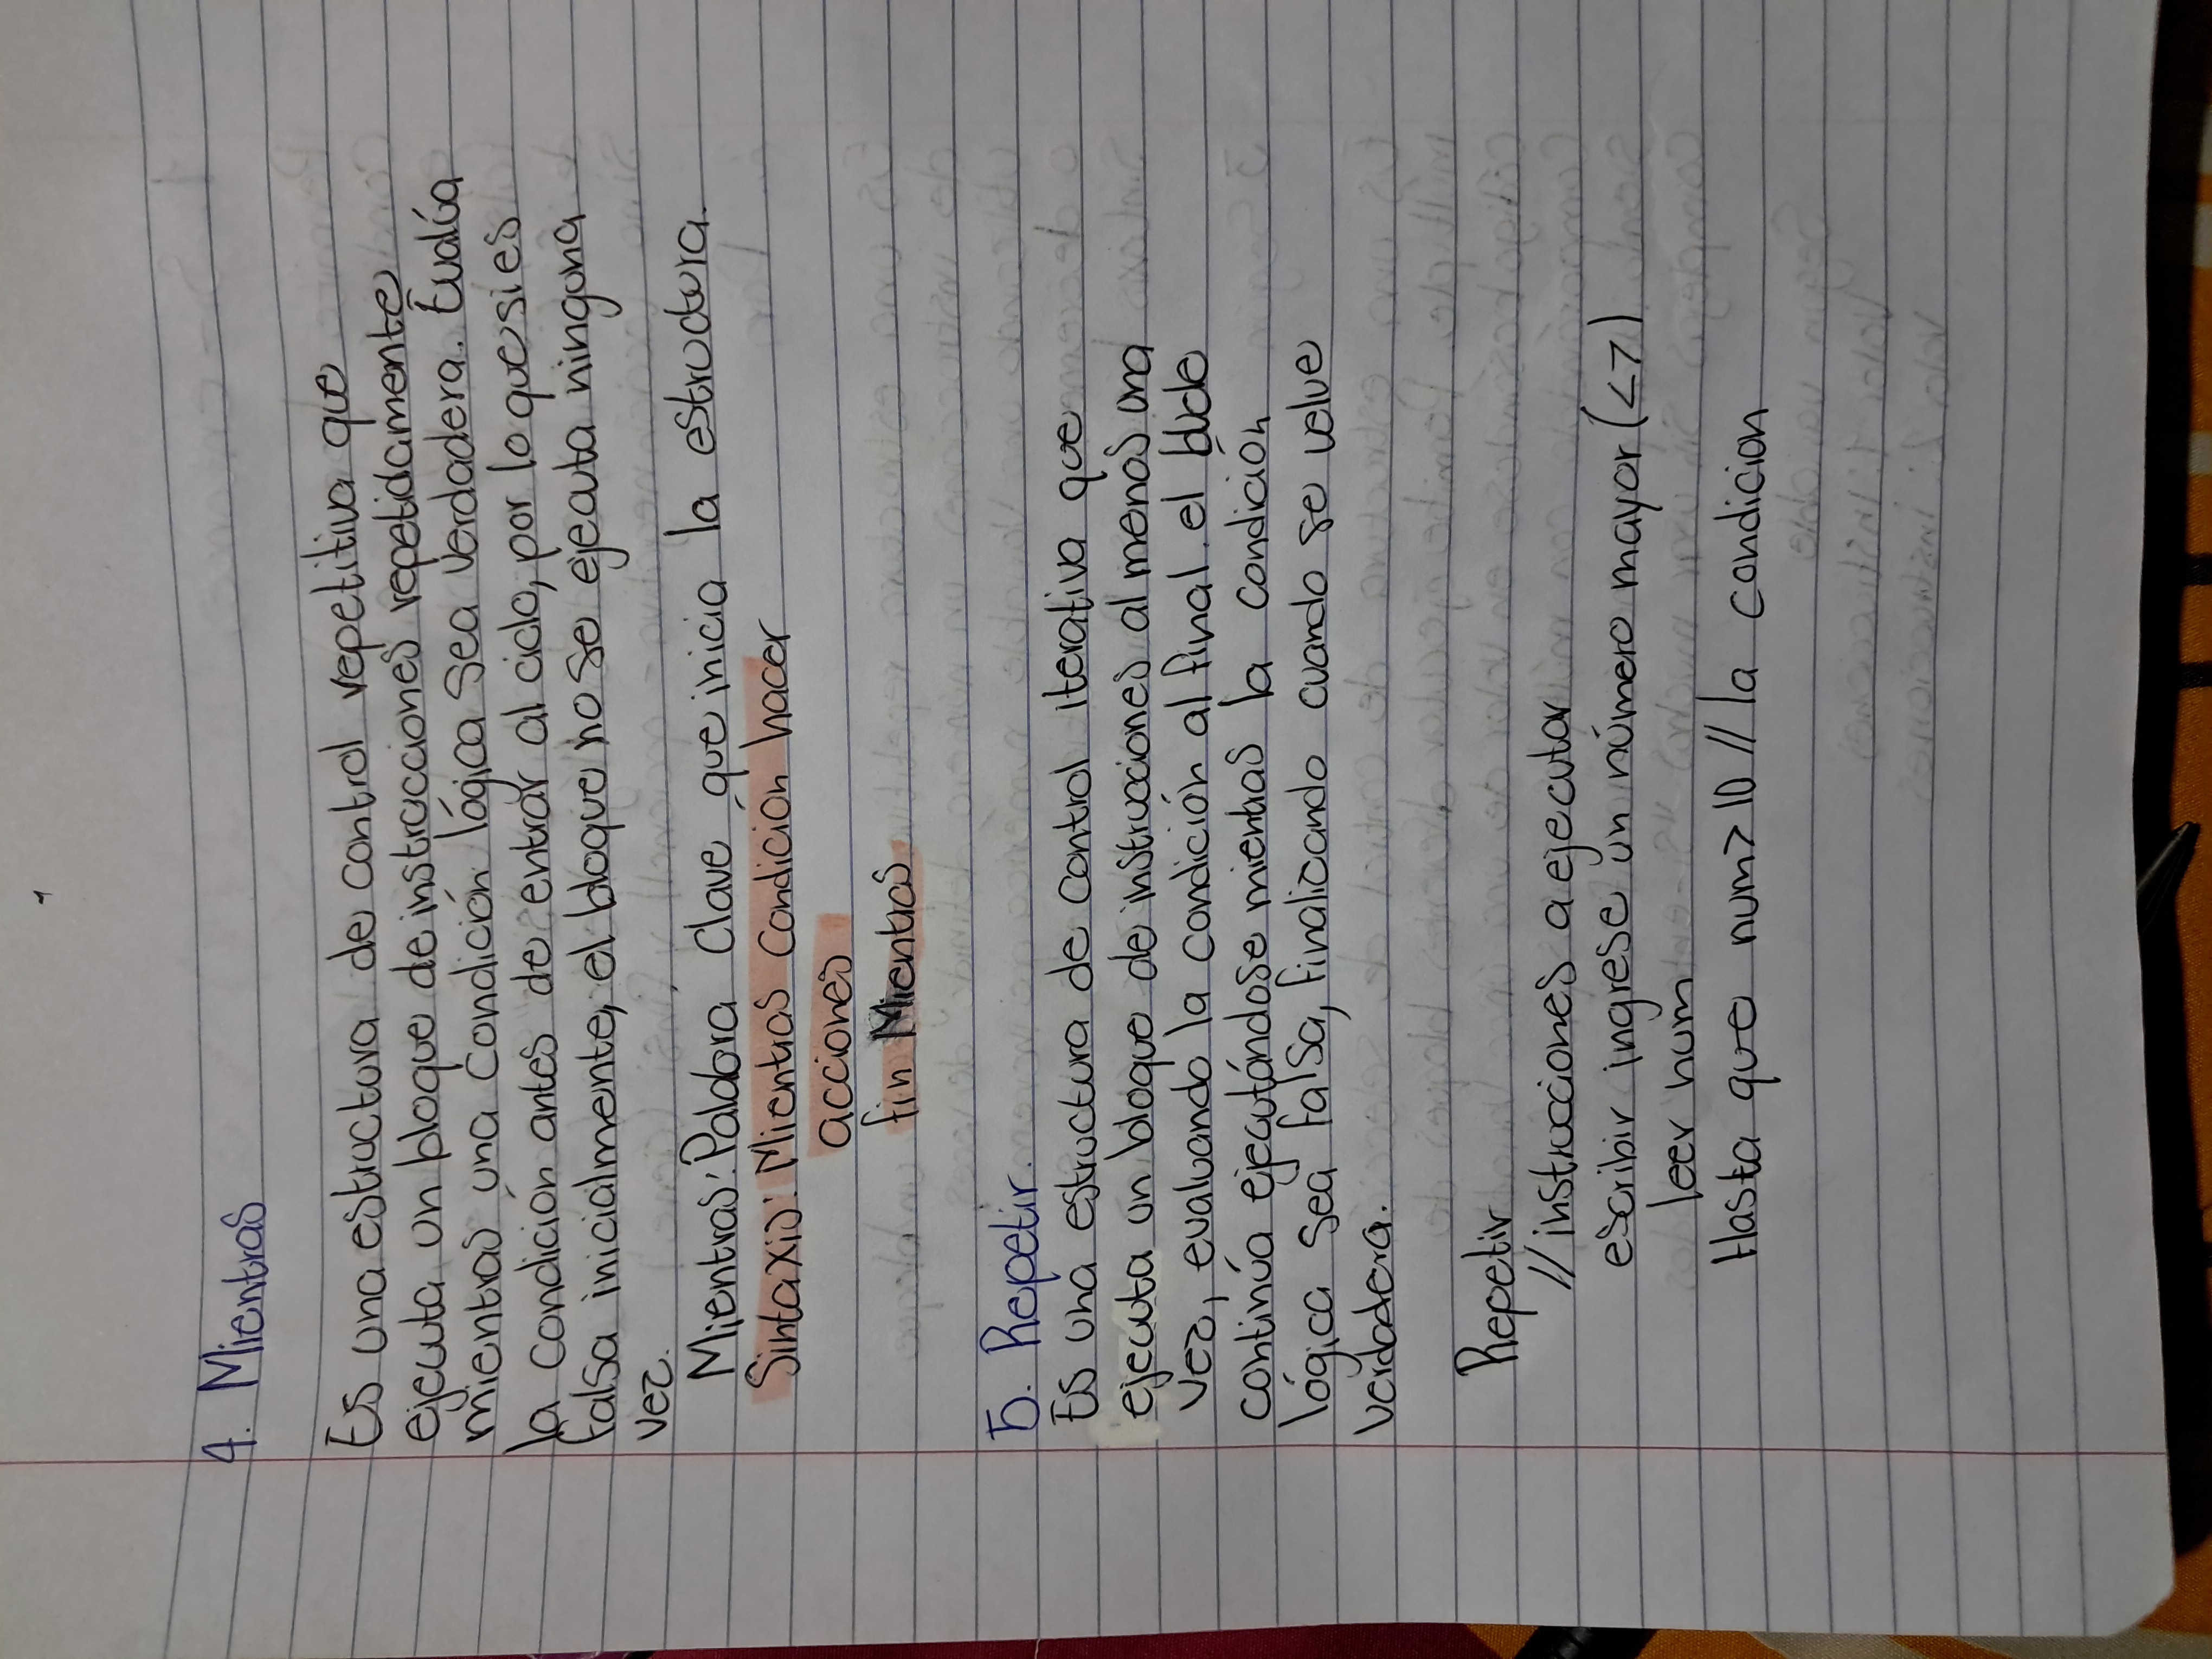 4. Mientras
Es una estructura de control repetitiva que
ejecuta un bloque de instrucciones repetidamente
mientras una condición lógica sea verdadera. Evalúa
la condición antes de entrar al ciclo, por lo que si es
falsa inicialmente, el bloque no se ejecuta ninguna
vez.
Mientras: Palabra clave que inicia la estructura.
Sintaxis: Mientras condición hacer
acciones
fin Mientras
5. Repetir.
Es una estructura de control iterativa que
ejecuta un bloque de instrucciones al menos una
vez, evaluando la condición al final. el bucle
continúa ejecutándose mientras la condición
lógica sea falsa, finalicando cuando se velve
verdadera.
Repetir
// instrucciones a ejecutar
escribir ingrese un número mayor (<7)
leer num
Hasta que num>10 // la condicion